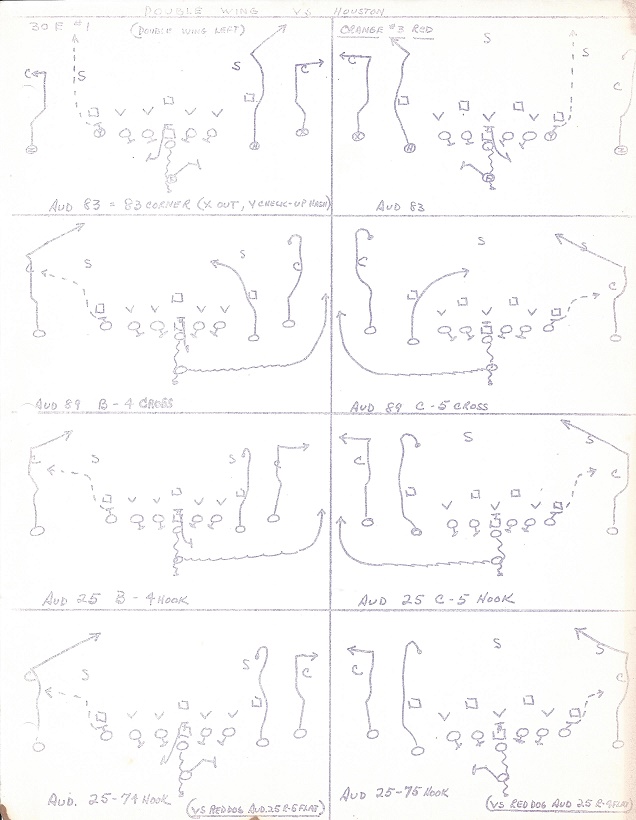 DOUBLE WING VS HOUSTON
30 E #1 (DOUBLE WING LEFT)
ORANGE #3 RED
AUD 83 = 83 CORNER (X OUT, Y CHECK-UP HASH)
AUD 83
AUD 89 B-4 CROSS
AUD 89 C-5 CROSS
AUD 25 B-4 HOOK
AUD 25 C-5 HOOK
AUD. 25-74 HOOK
(VS RED DOG AUD. 25 R-5 FLAT)
AUD 25-75 HOOK
(VS RED DOG AUD 25 R-4 FLAT)